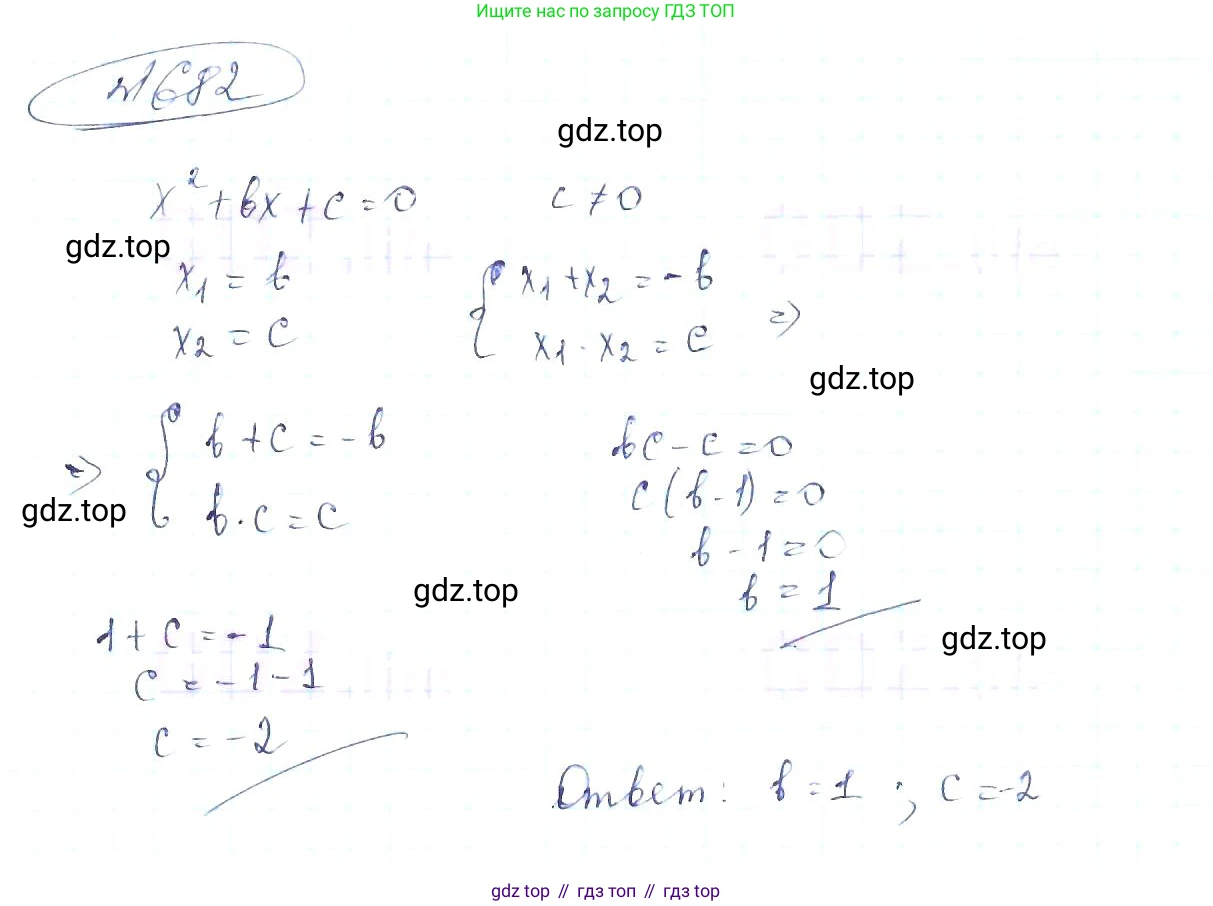 Ищите нас по запросу ГДЗ ТОП
№682
gdz.top
x² + bx + c = 0 c ≠ 0
gdz.top
x₁ = b
x₂ = c
{ x₁ + x₂ = -b
x₁ · x₂ = c =>
gdz.top
=> { b + c = -b
b · c = c
gdz.top
bc - c = 0
c(b - 1) = 0
b - 1 = 0
b = 1
gdz.top
1 + c = -1
c = -1 - 1
c = -2
gdz.top
Ответ: b = 1 ; c = -2
gdz top // гдз топ // gdz top